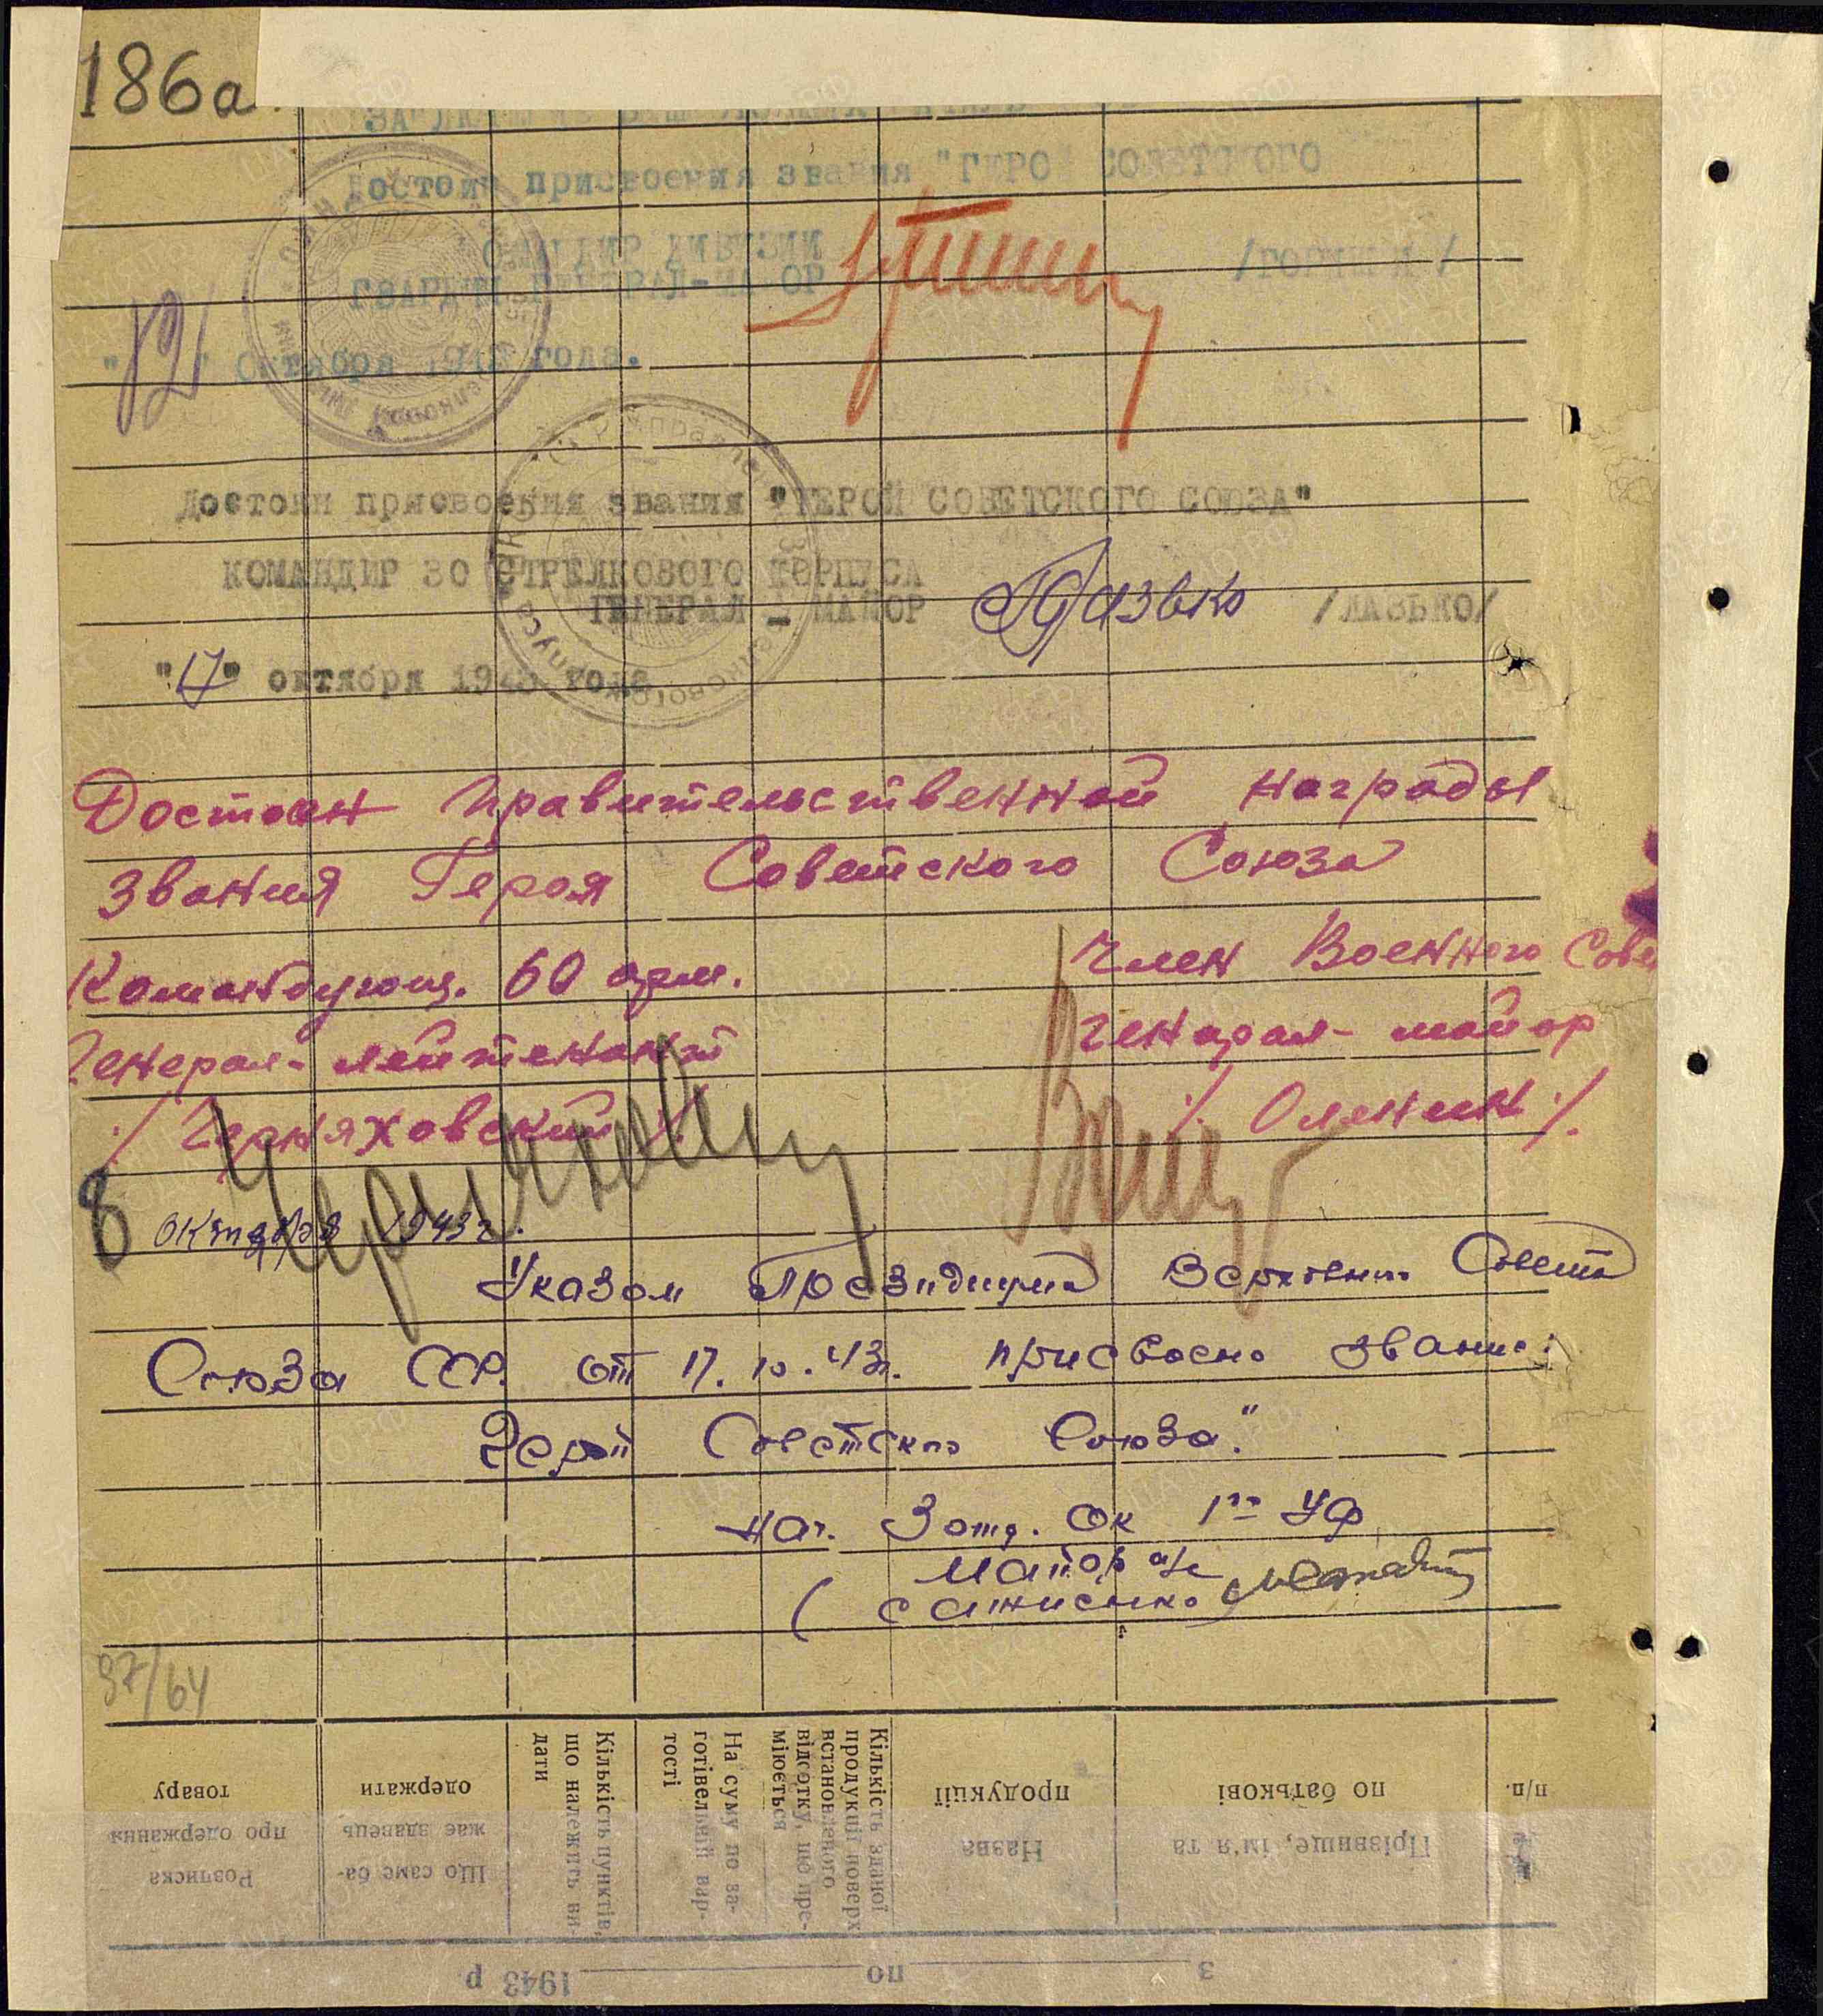 186а
Достоин присвоения звания "ГЕРОЙ СОВЕТСКОГО
КОМАНДИР ДИВИЗИИ
ГВАРДИИ ГЕНЕРАЛ-МАЙОР /ГОРИШНИЙ/
"12" Октября 1943 года.
Достоин присвоения звания "ГЕРОЙ СОВЕТСКОГО СОЮЗА"
КОМАНДИР 30 СТРЕЛКОВОГО КОРПУСА
ГЕНЕРАЛ - МАЙОР Лазько /ЛАЗЬКО/
октября 1943 года
Достоин Правительственной награды
звания Героя Советского Союза
Командующ. 60 арм. Член Военного Сове
Генерал-лейтенант генерал-майор
/Черняховский/ /Оленин/
8 октября 1943 г.
Указом Президиума Верховного Совета
Союза ССР. от 17.10.43г. присвоено звание:
Герой Советского Союза."
Нач. 3 отд. ОК 1го УФ
майор а/с
97/64
Розписка про одержання товару
Що саме бажає здавець одержати
Кількість пунктів, що належить видати
На суму по заготівельній вартості
Кількість зданої продукції поверх встановленого відсотку, що приміюється
Назва продукції
Прізвище, ім'я та по батькові
№ п/п.
з по 1943 р